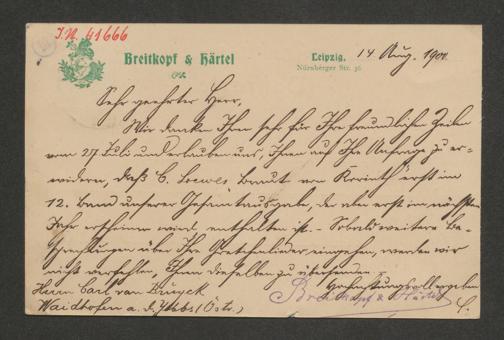 J.N. 41666
Breitkopf & Härtel
Leipzig, 14 Aug. 1900.
Nürnberger Str. 36
Sehr geehrter Herr,
Wir danken Ihnen sehr für Ihre freundlichen Zeilen
vom 27 Juli und erlauben uns, Ihnen auf Ihre Anfrage zu er-
widern, daß C. Loewes Braut von Korinth erst im
12. Band unserer Gesamtausgabe, der aber erst im nächsten
Jahr erscheinen wird enthalten ist. - Sobald weitere Be-
sprechungen über Ihre Gretchenlieder eingehen, werden wir
nicht verfehlen, Ihnen dieselben zu übersenden.
Hochachtungsvoll ergeben
Herrn Carl van Bruyck
Breitkopf & Härtel
Waidhofen a. d. Ybbs (Östr.)